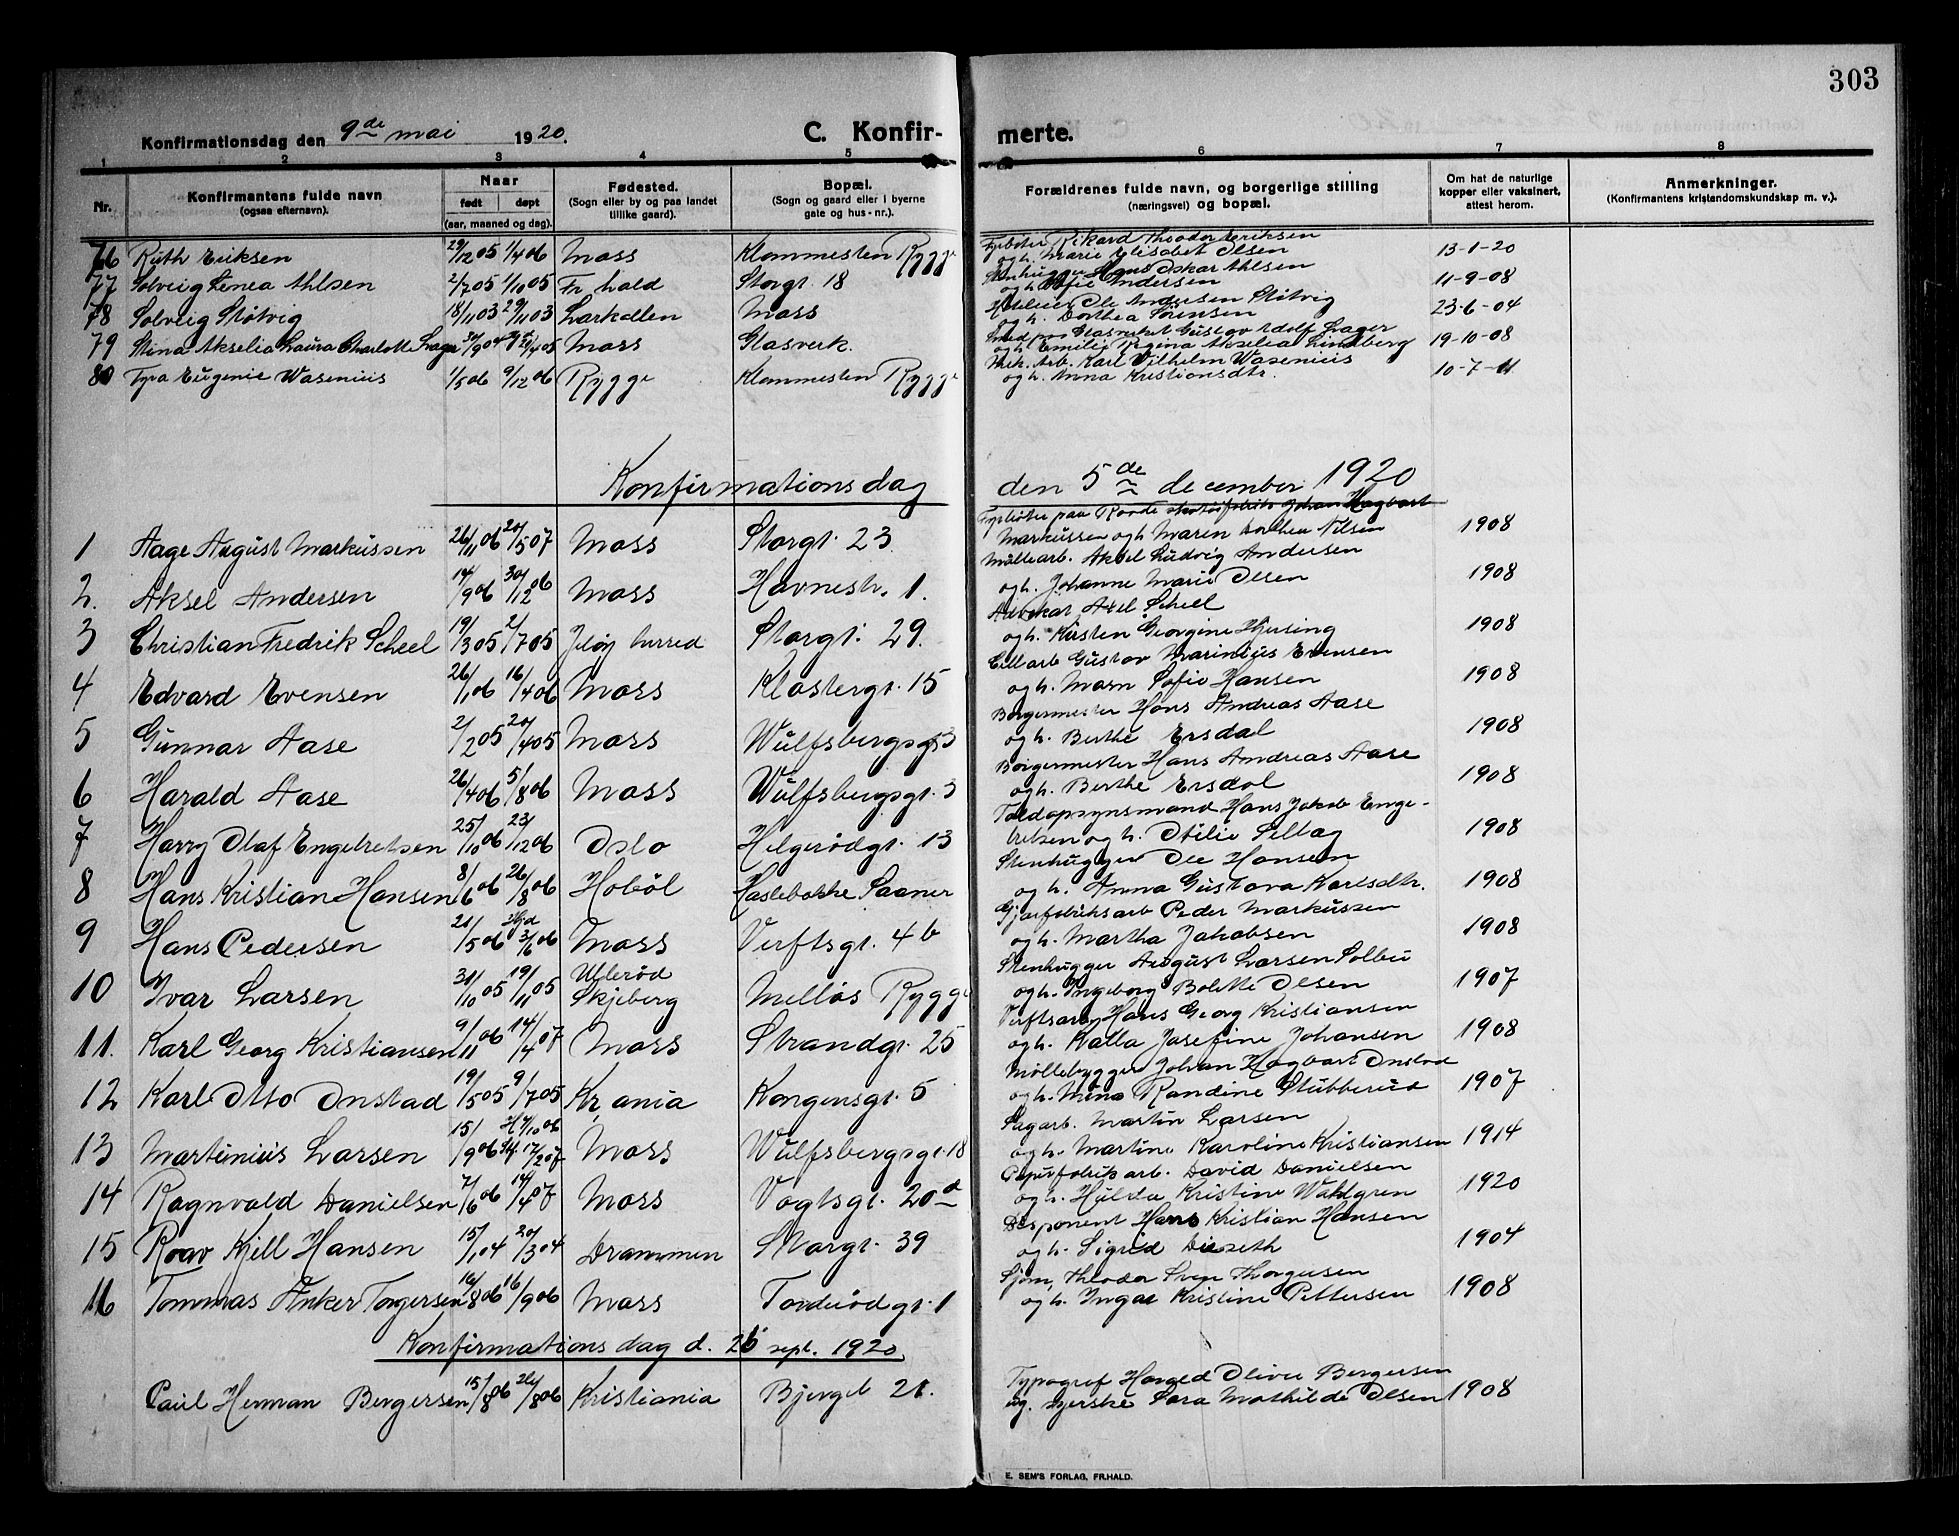 303
Konfirmationsdag den 9de mai 1920.
C. Konfir- merte.
1 2 3 4 5 6 7 8
Nr.
Konfirmantens fulde navn
(ogsaa efternavn).
Naar
født døpt
(aar, maaned og dag).
Fødested.
(Sogn eller by og paa landet
tillike gaard).
Bopæl.
(Sogn og gaard eller i byerne
gate og hus-nr.).
Forældrenes fulde navn, og borgerlige stilling
(næringsvei) og bopæl.
Om hat de naturlige
kopper eller vaksinert,
attest herom.
Anmerkninger.
(Konfirmantens kristendomskundskap m. v.).
76 Ruth Eriksen 29/12 05 1/4 06 Moss Klommesten Rygge Fyrbøter Rikard Theodor Eriksen
og h. Marie Elisabet Olsen 13-1-20
77 Solveig Linea Ahlsen 2/7 05 1/10 05 Fr. hald Storgt. 18 Stenhugger Hans Oskar Ahlsen
og h. Sofie Andersen 11-9-08
78 Solveig Støtvig 18/11 03 29/11 03 Larkollen Moss Ole Andresen Støtvig
og h. Dorthea Sørensen 23-6-04
79 Stina Akselia Laura Charlotte Lager Moss Glasverk. Smed paa Glasverket Gustav Adolf Lager
og h. Emilie Regina Akselia Lindberg 19-10-08
80 Tyra Eugenie Wasenius 1/5 06 9/12 06 Rygge Klommesten Rygge Mek. Arb. Karl Vilhelm Wasenius
og h. Anna Kristiansdtr. 10-7-11
Konfirmationsdag den 5de december 1920
1 Aage August Markussen 26/11 06 20/5 07 Moss Storgt. 23 Fyrbøter paa Johan Hagbart
Markussen og h. Maren Dorthea Nilsen 1908
2. Aksel Andersen 14/9 06 30/12 06 Moss Havnestr. 1. Møllearb. Aksel Ludvig Andersen
og h. Johanne Marie Olsen 1908
3 Christian Fredrik Scheel 19/3 05 2/7 05 Jeløy herred Storgt. 29. Advokat Axel Scheel
og h. Kirsten Georgine Hjersing 1908
4 Edvard Evensen 26/1 06 16/4 06 Moss Klostergt. 15 Cellarb Gustav Marinius Evensen
og h. Marn Sofie Hansen 1908
5 Gunnar Aase 2/2 05 20/4 05 Moss Wulfsbergsgt 3 Borgermester Hans Andreas Aase
og h. Berthe Ersdal 1908
6 Harald Aase 26/4 06 5/8 06 Moss Wulfsbergsgt. 3 Borgermester Hans Andreas Aase
og h. Berthe Ersdal 1908
7 Harry Olaf Engebretsen 25/10 06 23/12 06 Oslo Helgerødgt. 13 Toldopsynsmand Hans Jakob Enge-
bretsen og h. Otilie Sellæg 1908
8 Hans Kristian Hansen 8/6 06 26/8 06 Hobøl Haslebakke Saaner Stenhugger Ole Hansen
og h. Anna Gustava Karlsdtr. 1908
9 Hans Pedersen 21/5 06 Hjd 3/6 06 Moss Verftsgt. 4b Gjærfabriksarb Peder Markussen
og h. Martha Jakobsen 1908
10 Ivar Larsen 31/10 05 19/11 05 Ullerød
Skjeberg Melløs Rygge Stenhugger August Larsen Solbu
og h. Ingeborg Bolette Olsen 1907
11. Karl Georg Kristiansen 9/11 06 14/4 07 Moss Strandgt. 25 Verftsarb Hans Georg Kristiansen
og h. Kalla Josefine Johansen 1908
12 Karl Otto Onstad 19/5 05 9/7 05 Kr.ania Kongensgt. 5 Møllebygger Johan Hagbart Onstad
og h. Mina Randine Stubberud 1907
13 Martinius Larsen 15/9 06 H 7/10 06 17/2 07 Moss Wulfsbergsgt. 18 Sagarb. Martin Larsen
og h. Martine Karoline Kristiansen 1914
14 Ragnvald Danielsen 7/6 06 14/4 07 Moss Vogtsgt. 20d Papirfabrikarb. David Danielsen
og h. Hulda Kristine Wahlgren 1920
15 Roar Kjell Hansen 15/1 04 20/3 04 Drammen Storgt. 39 Disponent Hans Kristian Hansen
og h. Sigrid Dieseth 1904
16 Tommas Anker Torgersen 16/8 06 16/9 06 Moss Torderødgt. 1 Sjøm, Theodor Thorgersen
og h. Ingar Kristine Pettersen 1908
Konfirmationsdag d. 26 sept. 1920
Paul Herman Bergersen 15/8 06 26/8 06 Kristiania Bjerget 21. Typograf Harald Oliver Bergersen
og Syerske Sara Mathilde Olsen 1908
E. SEM'S FORLAG, FR.HALD.